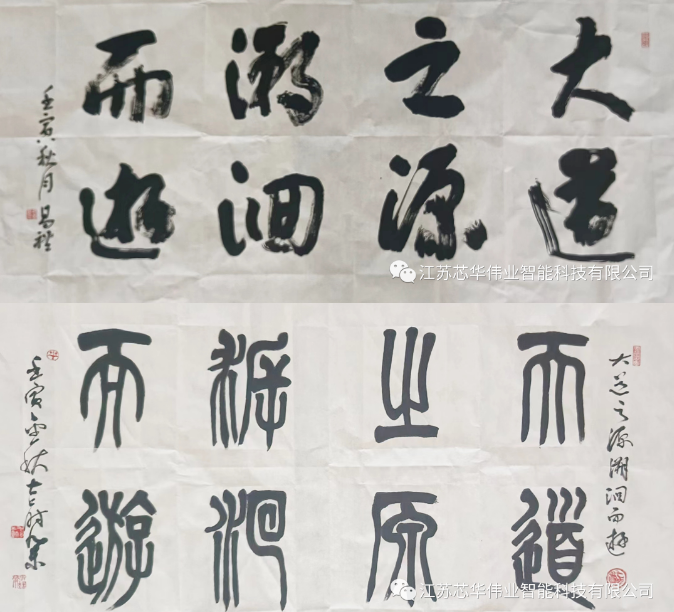 大道
之源
溯洄
而遊
壬寅秋月
江苏芯华伟业智能科技有限公司
大道之源溯洄而遊
大道
之原
溯洄
而遊
壬寅金秋
江苏芯华伟业智能科技有限公司